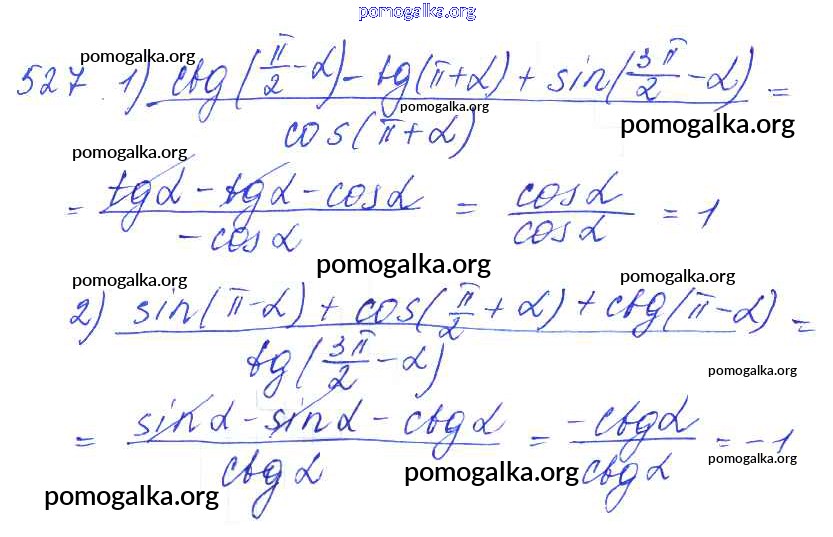 pomogalka.org
pomogalka.org
527. 1) ctg(π/2 - α) - tg(π + α) + sin(3π/2 - α) =
pomogalka.org
cos(π + α)
pomogalka.org
pomogalka.org
= tgα - tgα - cosα / -cosα = cosα / cosα = 1
pomogalka.org
pomogalka.org
pomogalka.org
2) sin(π - α) + cos(π/2 + α) + ctg(π - α) =
tg(3π/2 - α)
pomogalka.org
= sinα - sinα - ctgα / ctgα = -ctgα / ctgα = -1
pomogalka.org
pomogalka.org
pomogalka.org